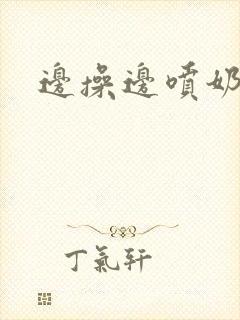 邊操邊噴奶
丁氣軒